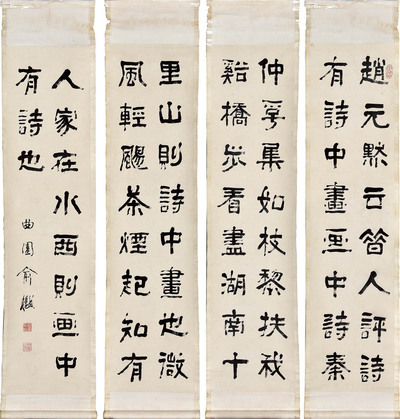 趙元黙云昔人評詩
有詩中畫画中詩秦
仲孚集如枝藜扶我
谿橋步看盡湖南十
里山則詩中畫也微
風輕颺茶煙起知有
人家在水西則画中
有詩也
曲園俞樾